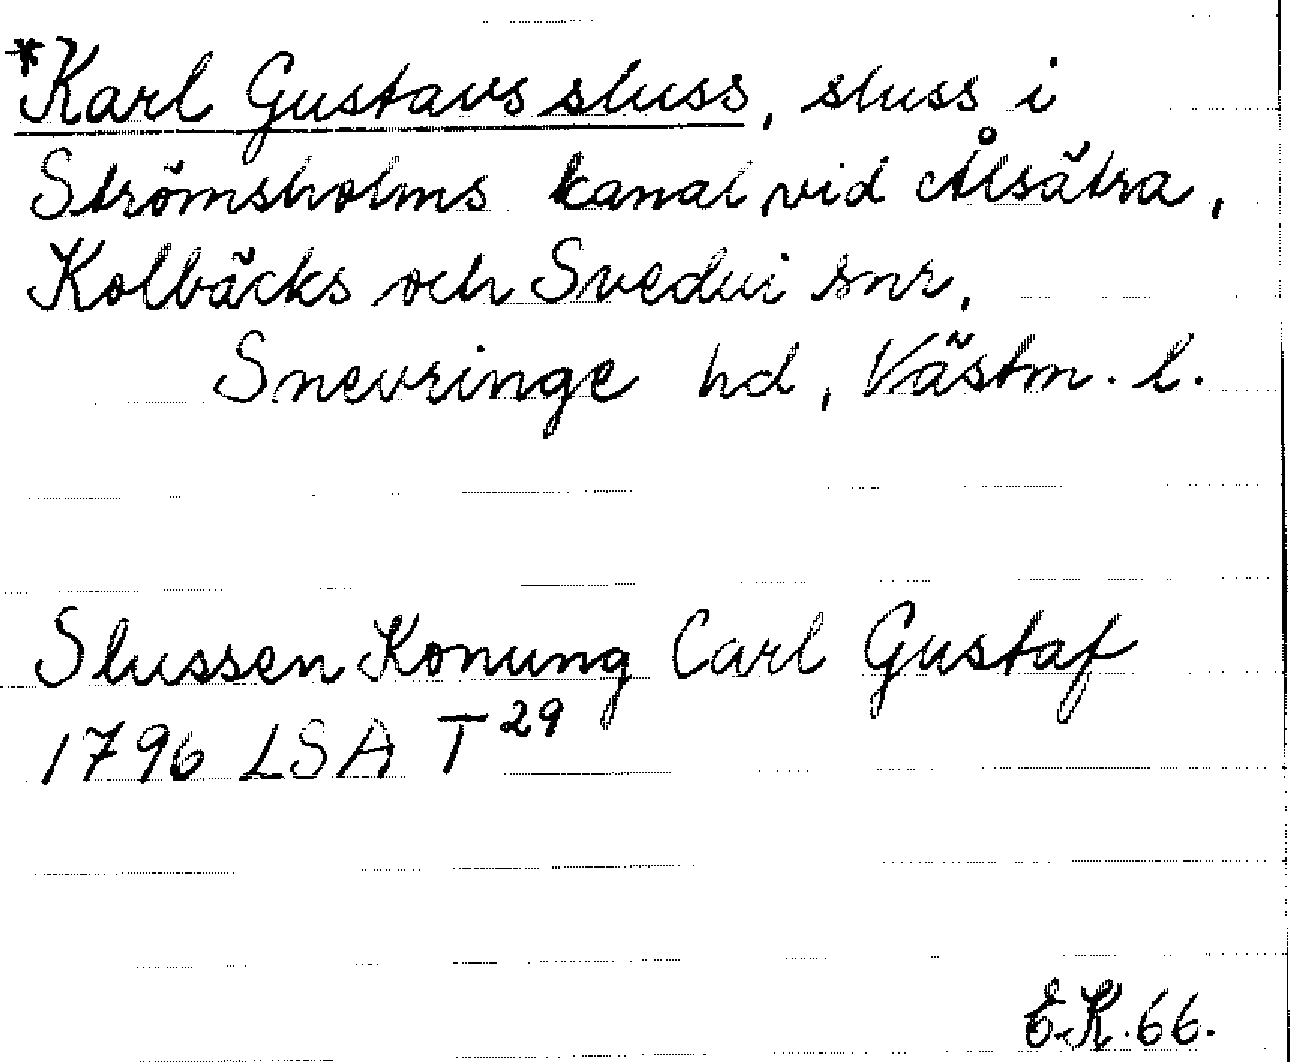 *Karl Gustavs sluss, sluss i
Strömsholms kanal vid Ålsätra,
Kolbäcks och Svedvi snr,
Snevringe hd, Västm. l.
Slussen Konung Carl Gustaf
1796 LSA T²⁹
E.K. 66.